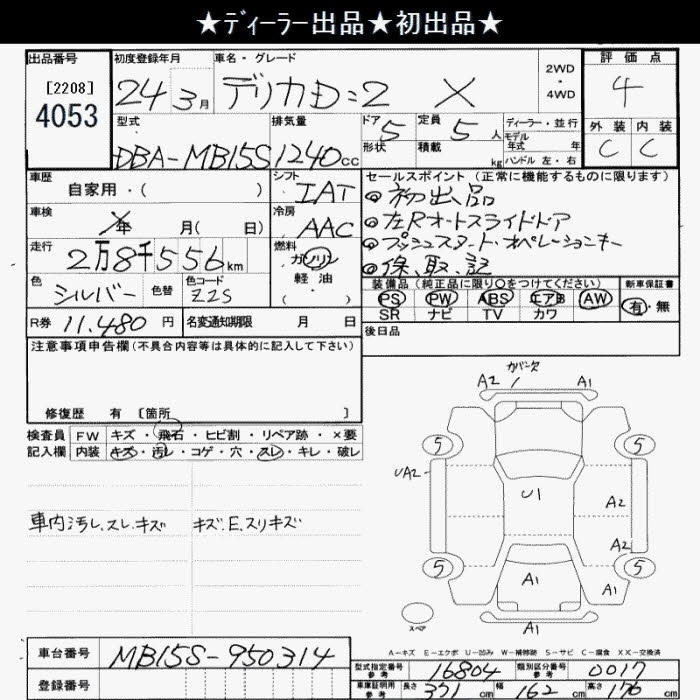 ★ディーラー出品★初出品★
出品番号 初度登録年月 車名・グレード 評価点
[2208] 24 3月 デリカD:2 X 2WD・4WD 4
4053
型式 排気量 ドア 5 定員 5人 ディーラー・並行 外装 内装
DBA-MB15S 1240cc 形状 積載 kg モデル年式 年 ハンドル 左・右 C C
車歴 シフト セールスポイント(正常に機能するものに限ります)
自家用・( ) IAT ◎初出品
車検 年 月( 日) 冷房 AAC ◎左Rオートスライドドア
走行 燃料 ◎プッシュスタート・オペレーションキー
2万8千556km ガソリン ◎保、取、記
色 シルバー 色替 色コード Z2S 軽油 ( )
装備品(純正品に限り○をつけてください) 新車保証書
PS PW ABS エアB AW 有・無
SR ナビ TV カワ
R券 11,480円 名変通知期限 月 日 後日品
注意事項申告欄(不具合内容等は具体的に記入して下さい)
修復歴 有 [箇所 ]
検査員 FW キズ・飛石・ヒビ割・リペア跡・×要
記入欄 内装 キズ・汚レ・コゲ・穴・スレ・キレ・破レ
カバー欠
A2 A1
5 5
UA2 U1 A2
A2
5 5
A1
スペア A1
車内汚レ、スレ、キズ キズ、E、スリキズ
A-キズ E-エクボ U-凹み W-補修跡 S-サビ C-腐食 XX-交換済
車台番号 MB15S-950314 型式指定番号 参考 16804 類別区分番号 参考 0017
登録番号 車庫証明用 参考 長さ 371cm 幅 162cm 高さ 176cm